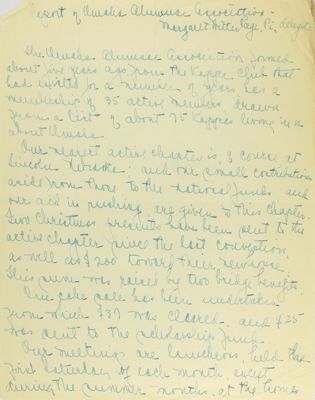 Report of Omaha Alumnae Association -
Margaret Hitter Page, Pi, delegate
The Omaha Alumnae Association formed
about five years ago from the Kappa Club that
had existed for a number of years, has a
membership of 35 active members drawn
from a list of about 75 Kappas living in &
about Omaha.
Our nearest active chapter is, of course at
Lincoln Nebraska: and our small contributions
aside from those to the national funds and
our aid in rushing are given to this chapter.
Two Christmas presents have been sent to the
active chapter since the last convention,
as well as $200 toward their new house.
This sum was raised by two bridge benefits.
One cake sale has been undertaken
from which $37 was cleared, and $25
was sent to the scholarship fund.
Our meetings are luncheons, held the
first Saturday of each month except
during the summer months, at the homes